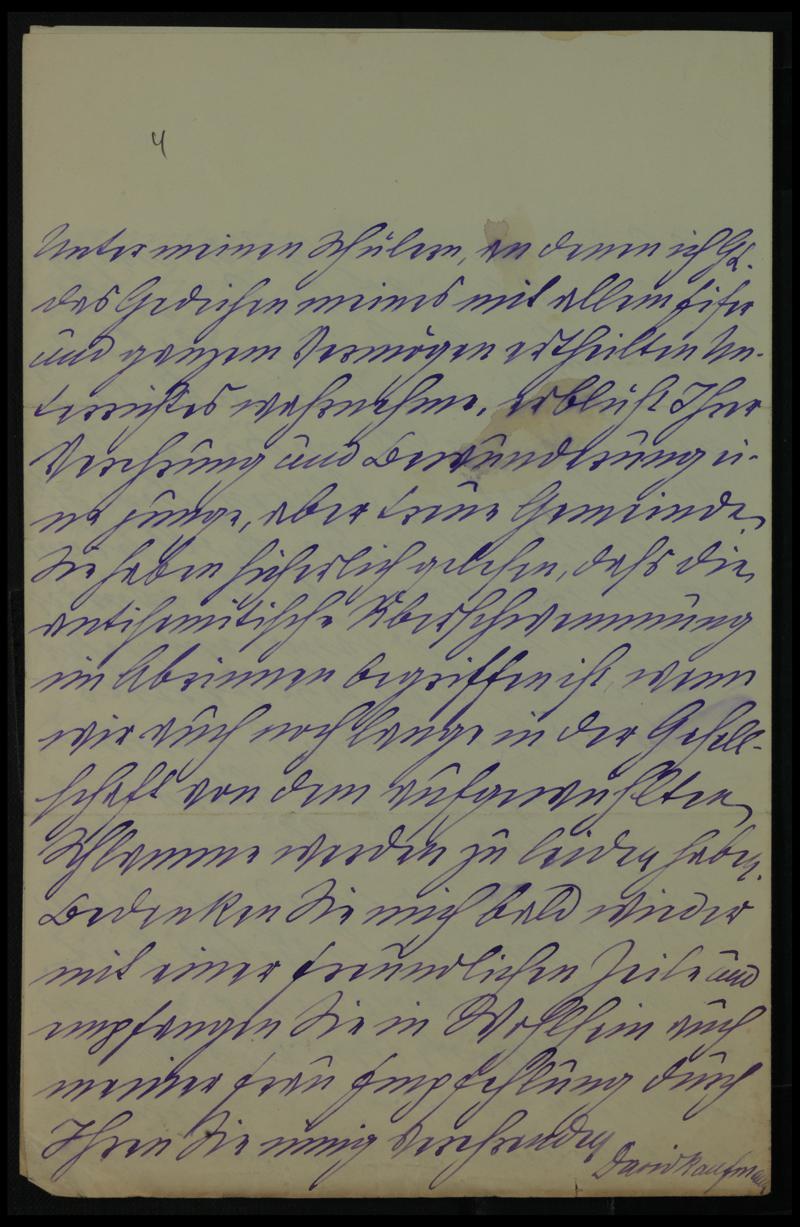 4
Unter meinen Schülern, an denen ich Gl.
das Gedeihen meines mit allem Eifer
und ganzem Vermögen ertheilten Un-
terrichtes wahrnehme, erblüht Ihrer
Verehrung und Bewunderung ei-
ne junge, aber treue Gemeinde.
Sie haben sicherlich gelesen, dass die
antisemitische Überschwemmung
im Abrinnen begriffen ist, wenn
wir auch noch lange in der Gesell-
schaft von dem aufgewühlten
Schlamme werden zu leiden haben.
Bedenken Sie mich bald wieder
mit einer freundlichen Zeile und
empfangen Sie in Wohlsein auch
meiner Frau Empfehlung durch
Ihren Sie innig verehrenden
David Kaufmann